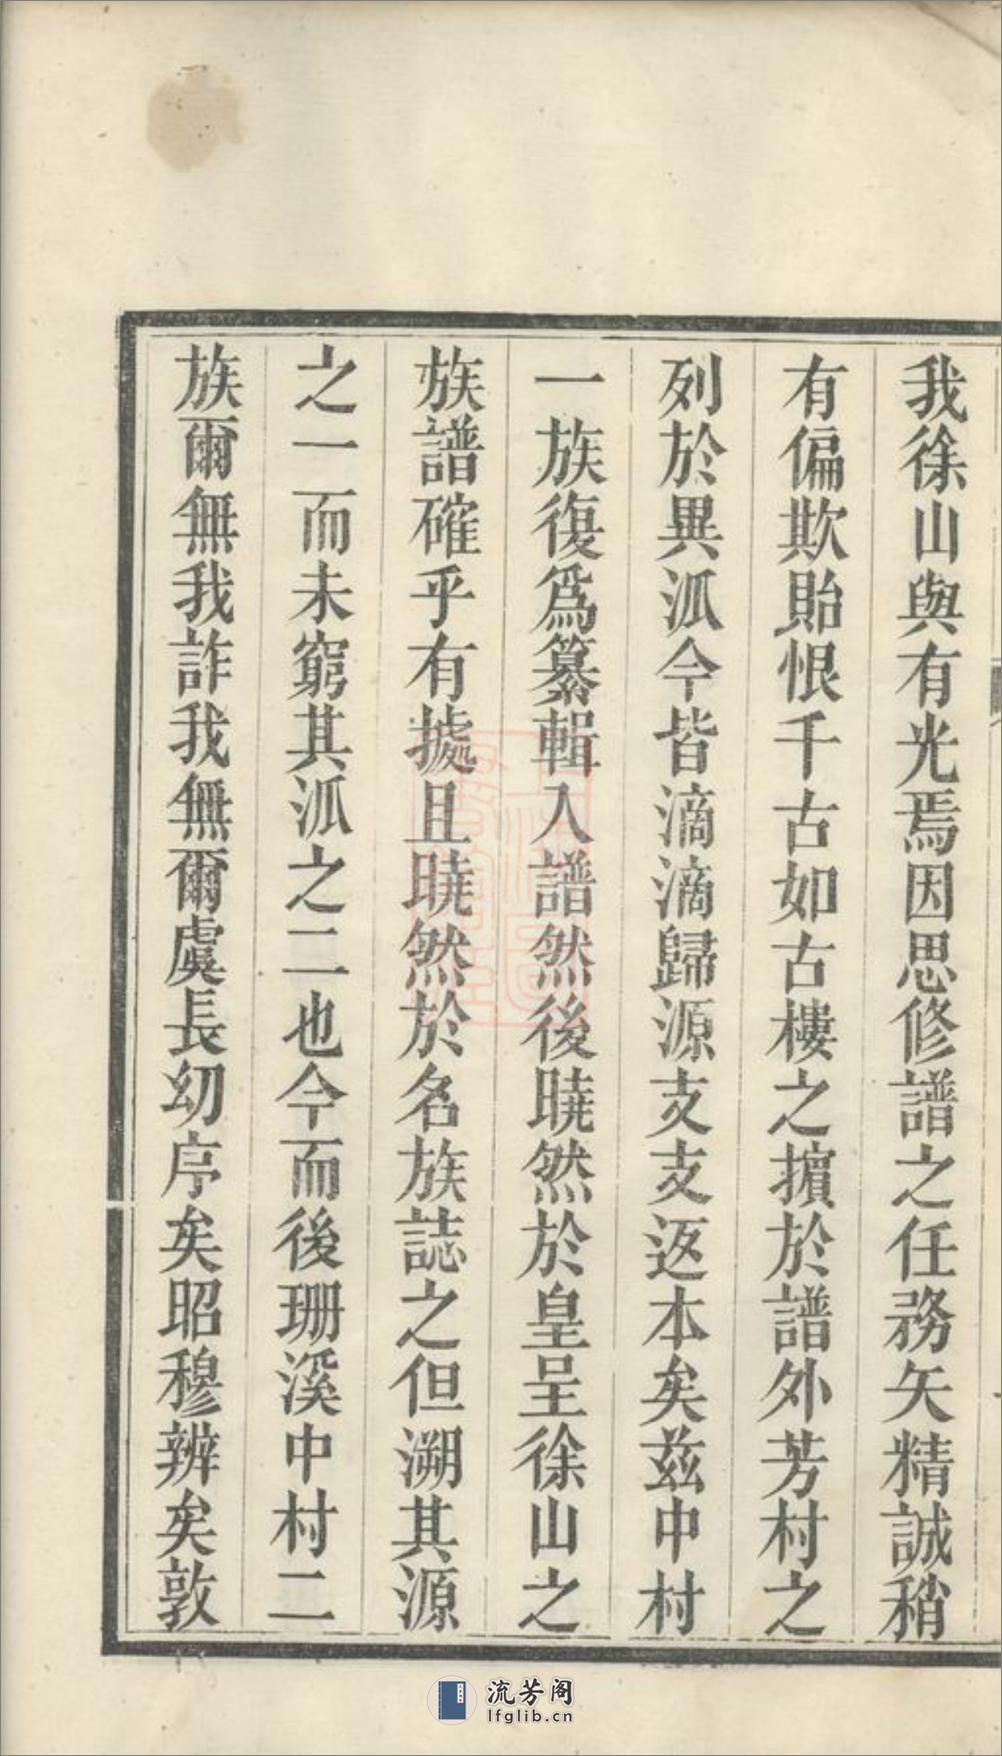 我徐山與有光焉因思修譜之任務矢精誠稍
有偏欺貽恨千古如古樓之擯於譜外芳村之
列於異泒今皆滴滴歸源支支返本矣茲中村
一族復爲纂輯入譜然後曉然於皇呈徐山之
族譜確乎有據且曉然於名族誌之但溯其源
之一而未窮其泒之二也今而後珊溪中村二
族爾無我詐我無爾虞長幼序矣昭穆辨矣敦
流芳阁
lfglib.cn